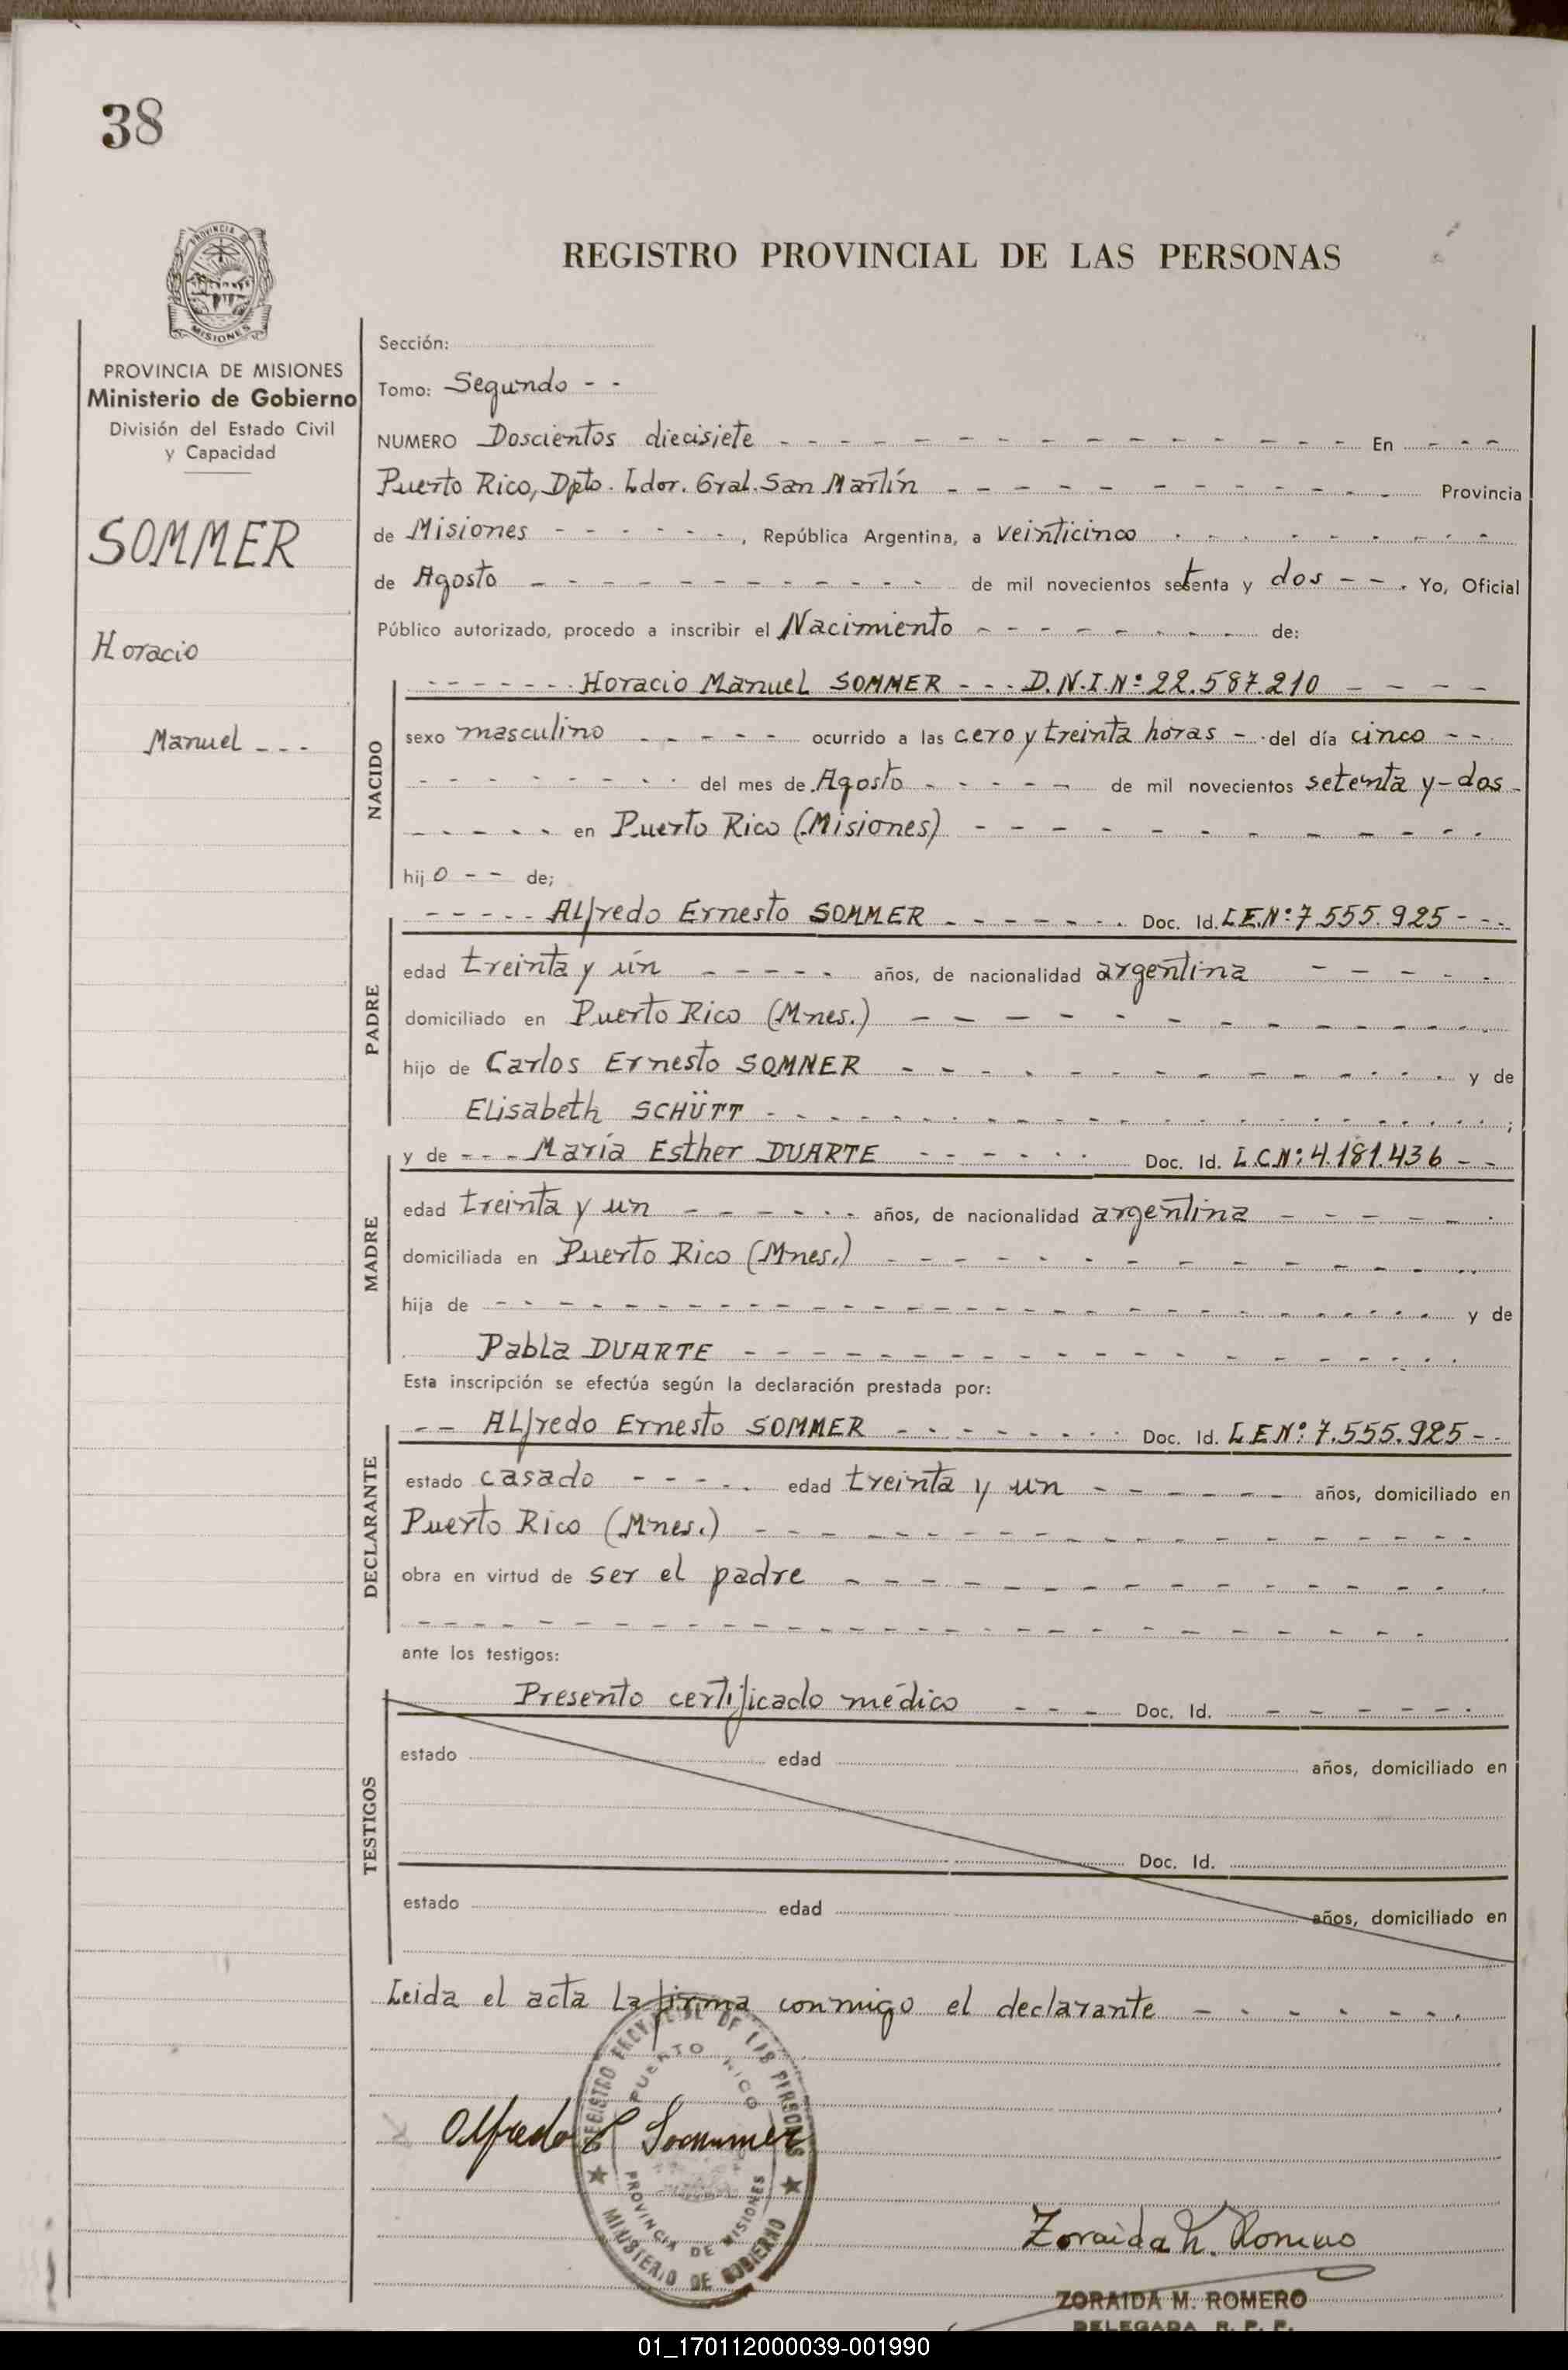 38
PROVINCIA
MISIONES
REGISTRO PROVINCIAL DE LAS PERSONAS
PROVINCIA DE MISIONES
Ministerio de Gobierno
División del Estado Civil
y Capacidad
SOMMER
Horacio
Manuel - - -
Sección:
Tomo: Segundo - -
NUMERO Doscientos diecisiete - - - En - - -
Puerto Rico, Dpto. Ldor. Gral. San Martín - - - Provincia
de Misiones - - - , República Argentina, a veinticinco - - -
de Agosto - - - de mil novecientos setenta y dos - - . Yo, Oficial
Público autorizado, procedo a inscribir el Nacimiento - - - de:
NACIDO
- - - Horacio Manuel SOMMER - - - D.N.I.Nº 22.587.210 - - -
sexo masculino - - - ocurrido a las cero y treinta horas - - del día cinco - -
- - - del mes de Agosto - - - de mil novecientos setenta y - dos -
- - - en Puerto Rico (Misiones) - - -
hijo - - de;
PADRE
- - - Alfredo Ernesto SOMMER - - - Doc. Id. L.E.Nº: 7.555.925 - - -
edad treinta y ún - - - años, de nacionalidad argentina - - -
domiciliado en Puerto Rico (Mnes.) - - -
hijo de Carlos Ernesto SOMMER - - - y de
Elisabeth SCHÜTT - - - ;
MADRE
y de - - - María Esther DUARTE - - - Doc. Id. L.C.Nº: 4.181.436 - -
edad treinta y un - - - años, de nacionalidad argentina - - -
domiciliada en Puerto Rico (Mnes.) - - -
hija de - - - y de
Pabla DUARTE - - -
Esta inscripción se efectúa según la declaración prestada por:
DECLARANTE
- - Alfredo Ernesto SOMMER - - - Doc. Id. L.E.Nº: 7.555.925 - -
estado casado - - - edad treinta y un - - - años, domiciliado en
Puerto Rico (Mnes.) - - -
obra en virtud de ser el padre - - -
- - -
ante los testigos:
TESTIGOS
Presento certificado médico - - - Doc. Id. - - -
estado edad años, domiciliado en
Doc. Id.
estado edad años, domiciliado en
Leida el acta la firma conmigo el declarante - - -
REGISTRO PROVINCIAL DE LAS PERSONAS
PUERTO RICO
PROVINCIA DE MISIONES
MINISTERIO DE GOBIERNO
Alfredo E Sommer
Zoraida M. Romero
ZORAIDA M. ROMERO
DELEGADA R. P. P.
01_170112000039-001990